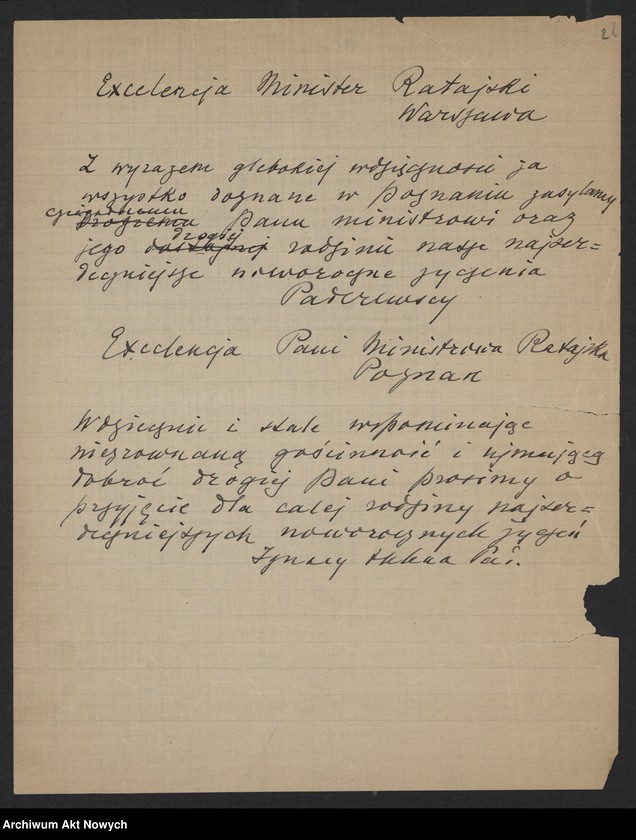 22
Excelencja Minister Ratajski
Warszawa
Z wyrazem głebokiej wdzięcznosci za
wszystko doznane w Poznaniu zasylamy
Panu ministrowi oraz
drogiej
jego rodzinie nasze najser=
deczniejsze noworoczne zyczenia
Paderewscy
Excelencja Pani Ministrowa Ratajska
Poznan
Wdzięcznie i stale wspominając
niezrownaną gościnność i ujmującą
dobroć drogiej Pani prosimy o
przyjęcie dla calej rodziny najser=
deczniejszych noworocznych życzeń
Ignacy Helena Pad.
Archiwum Akt Nowych